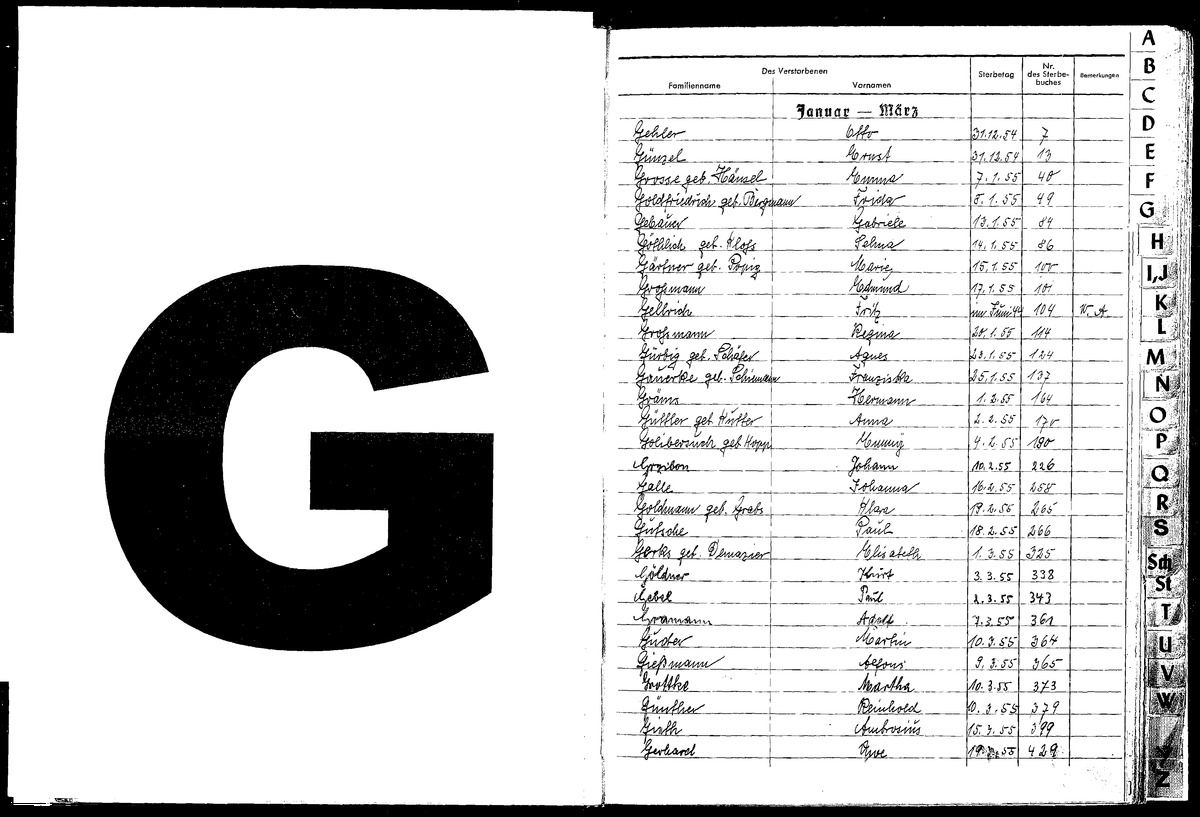 G
Des Verstorbenen
Familienname Vornamen Sterbetag Nr. des Sterbebuches Bemerkungen
Januar — März
Gehler Otto 31.12.54 7
Günzel Ernst 31.12.54 13
Grosse geb. Hänsel Emma 7.1.55 40
Goldfriedrich geb. Bergmann Frida 8.1.55 49
Gebauer Gabriele 13.1.55 84
geb. Klofs Selma 14.1.55 86
Gärtner geb. Marie 15.1.55 100
Großmann Edmund 17.1.55 101
Gellrich Fritz im Juni 44 104 W. A.
Großmann Regina 20.1.55 114
Gürbig geb. Schäfer Agnes 23.1.55 124
geb. Schiemann Franziska 25.1.55 137
Gräms Hermann 1.2.55 164
Güttler geb. Hutter Anna 2.2.55 170
geb. Hopp 4.2.55 180
Johann 10.2.55 226
Galle Johanna 16.2.55 258
Goldmann geb. Grabs Klara 19.2.55 265
Gutsche Paul 18.2.55 266
Gerks geb. Demazier Elisabeth 1.3.55 325
Göldner Kurt 3.3.55 338
Gebel Paul 2.3.55 343
Gramann Adolf 7.3.55 361
Guder Martin 10.3.55 364
Gießmann Alfons 9.3.55 365
Grottke Martha 10.3.55 373
Günther Reinhold 10.3.55 379
Gieth Ambrosius 15.3.55 399
Gerhard Uwe 429
A
B
C
D
E
F
G
H
I,J
K
L
M
N
O
P
Q
R
S
Sch
St
T
U
V
W
Z